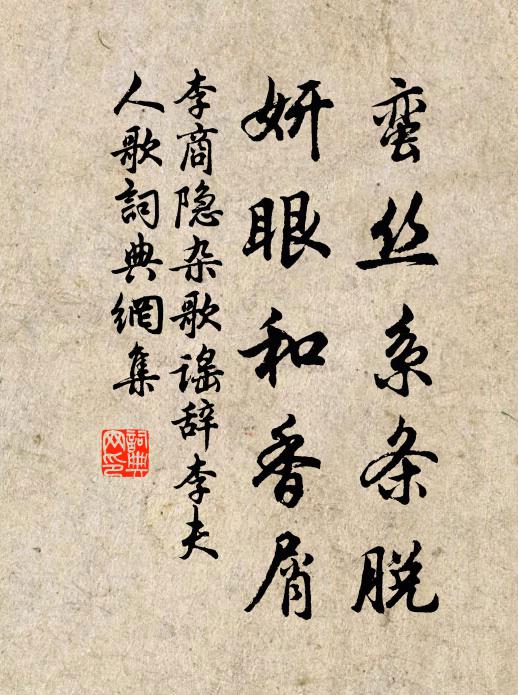 蛮丝系条脱
妍眼和香屑
李商隐杂歌谣辞李夫
人歌詞典網集
詞典
网印